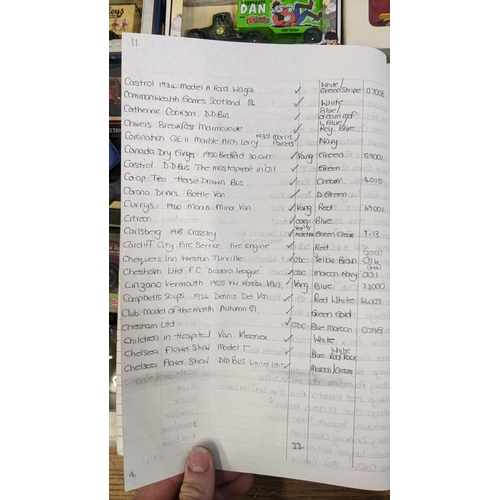 DAN
11
Castrol 1934 Model A Ford Wagon ✓ White/ Green Stripe 07008
Commonwealth Games Scotland 86 ✓ White
Catherine Cookson D.D Bus ✓ Blue/ cream roof
Chivers Breakfast Marmalade ✓ L Blue/ Roy. Blue
Coronation QE II Marble Arch Lorry 1935 Morris Parcels ✓ Navy
Canada Dry Ginger 1950 Bedford 30 cwt ✓ Vang Green 59001
Castrol D.D Bus The masterpiece in Oil ✓ Green
Co.op Tea Horse Drawn Bus ✓ Cream
Corona Drinks Bottle Van ✓ D. Green
Currys 1960 Morris Mina Van ✓ Vang Red
Citroen ✓ Blue
Carlsberg 1918 Crossley ✓ Green Cream Y-13
Cardiff City Fire Service Fire Engine ✓ Red
Chequers Inn Weston Turville ✓ ODC Yellow Brown
Chesham Ltd F.C. Diadora league ✓ ODC Maroon Navy 001
Cinzano Vermouth 1955 VW Kombi Van ✓ Vang Blue 73000
Campbells Soups 1926 Dennis Del Van ✓ Red White 66003
Club Model of the month Autumn 89 ✓ Green Gold
Chesham Ltd ✓ ODC Blue Maroon
Children in Hospital Van Kleenex ✓ White
Chelsea Flower Show Model T ✓ Blue White Roof Rack
Chelsea Flower Show D/D Bus Limited Edition ✓ Maroon/Cream
22